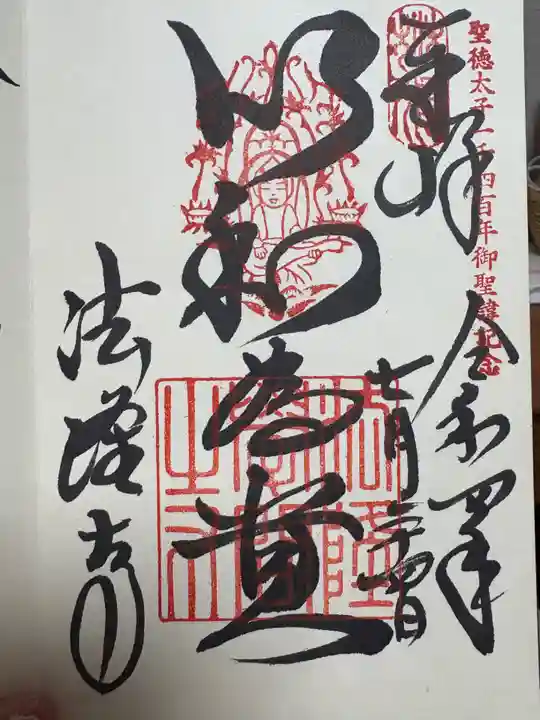 聖徳太子一千四百年御聖諱記念
奉拝
令和四年
七月二十四日
以和為貴
法隆寺